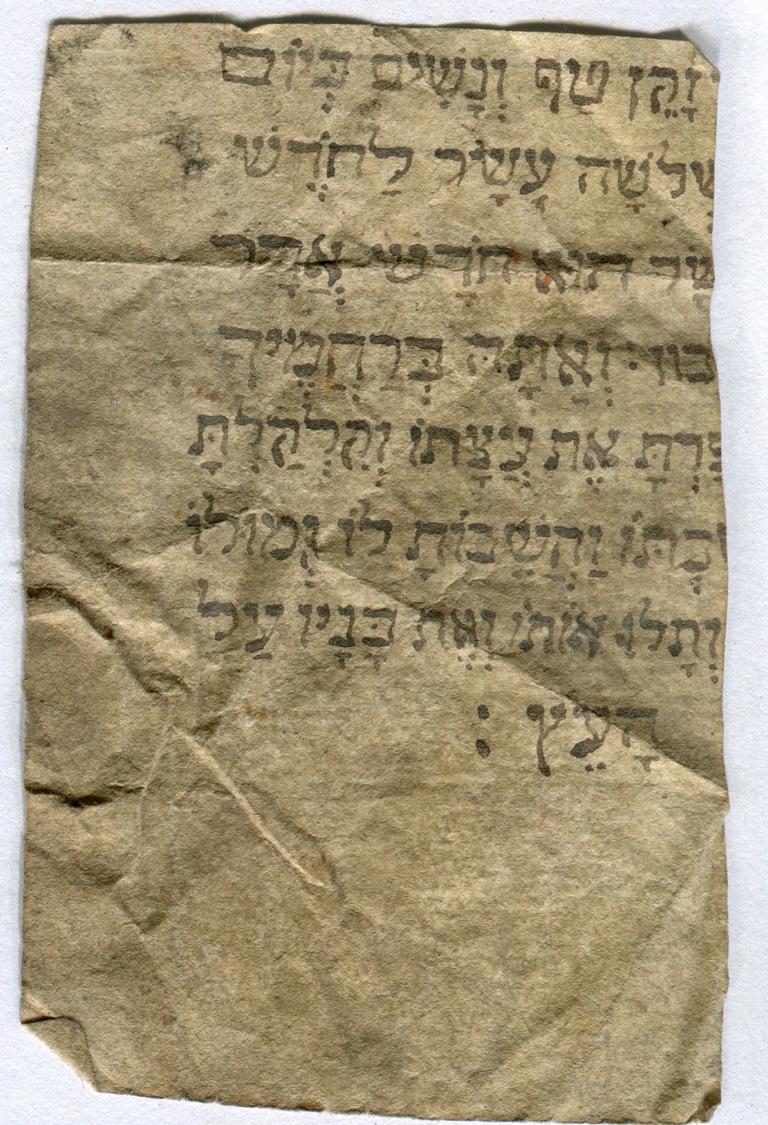 זָקֵן טַף וְנָשִׁים בְּיוֹם
שְׁלֹשָׁה עָשָׂר לַחֹדֶשׁ
שָׂר הוּא חֹדֶשׁ אֲדָר
בוז: וְאַתָּה בְּרַחֲמֶיךָ
פַרְתָּ אֶת עֲצָתוֹ וְקִלְקַלְתָּ
שַׁבְתּוֹ וַהֲשֵׁבוֹתָ לוֹ גְּמוּלוֹ
וְתָלוּ אוֹתוֹ וְאֶת בָּנָיו עַל
הָעֵץ :